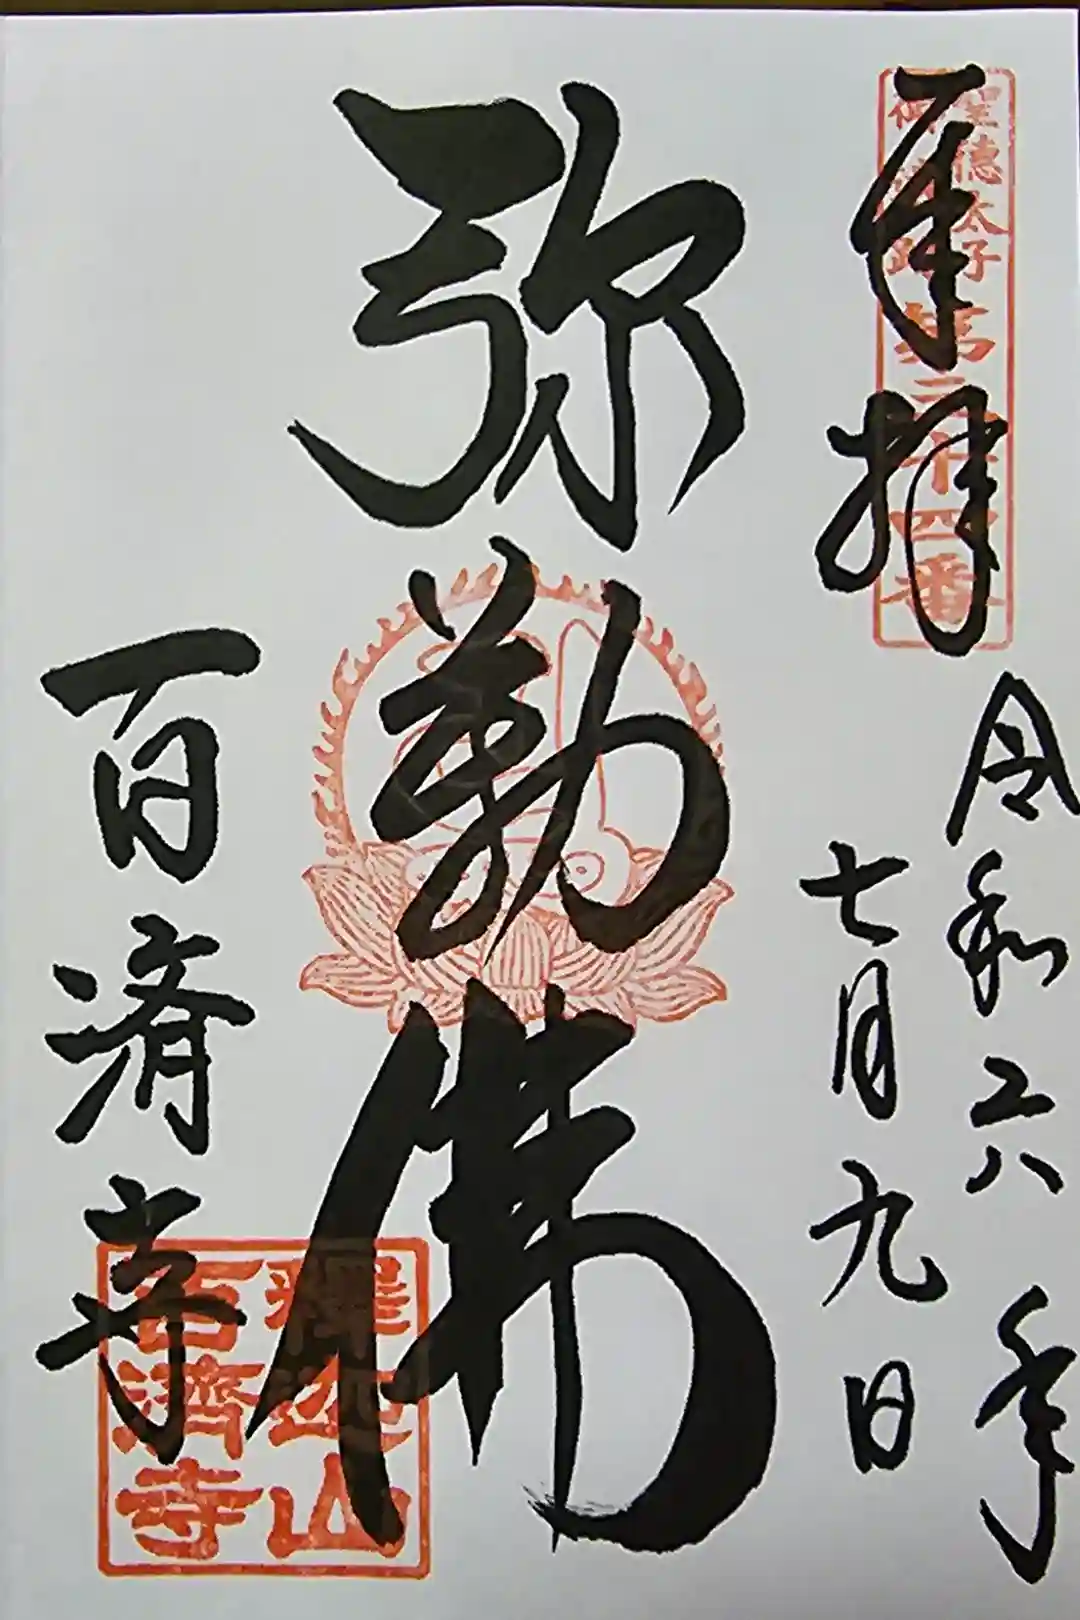 奉拝
聖徳太子
御遺跡
第三十四番
令和六年
七月九日
弥勒佛
百済寺
釋迦山
百濟寺